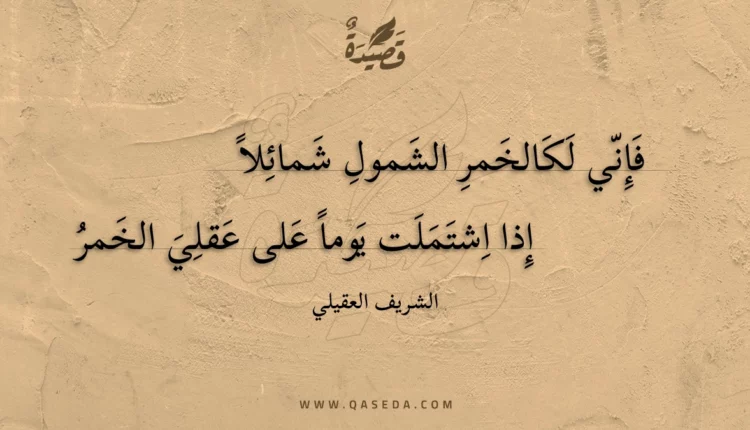 قَصِيدَةٌ
فَإِنّي لَكَالخَمرِ الشَمولِ شَمائِلاً
إِذا اِشتَمَلَت يَوماً عَلى عَقلِيَ الخَمرُ
الشريف العقيلي
WWW.QASEDA.COM